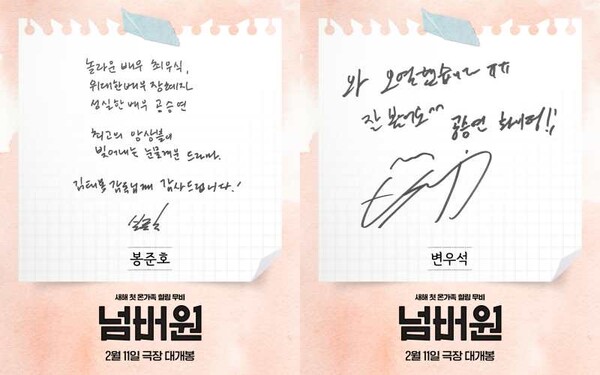 놀라운 배우 최우식,
위대한 배우 장혜진
성실한 배우 공승연
최고의 앙상블이
빚어내는 눈물겨운 드라마.
김태용 감독님께 감사드립니다!
봉준호
새해 첫 온가족 힐링 무비
넘버원
2월 11일 극장 대개봉
와 오열했습니다 ㅠㅠ
잘 봤어요^^ 공승연 화이팅!!
변우석
새해 첫 온가족 힐링 무비
넘버원
2월 11일 극장 대개봉